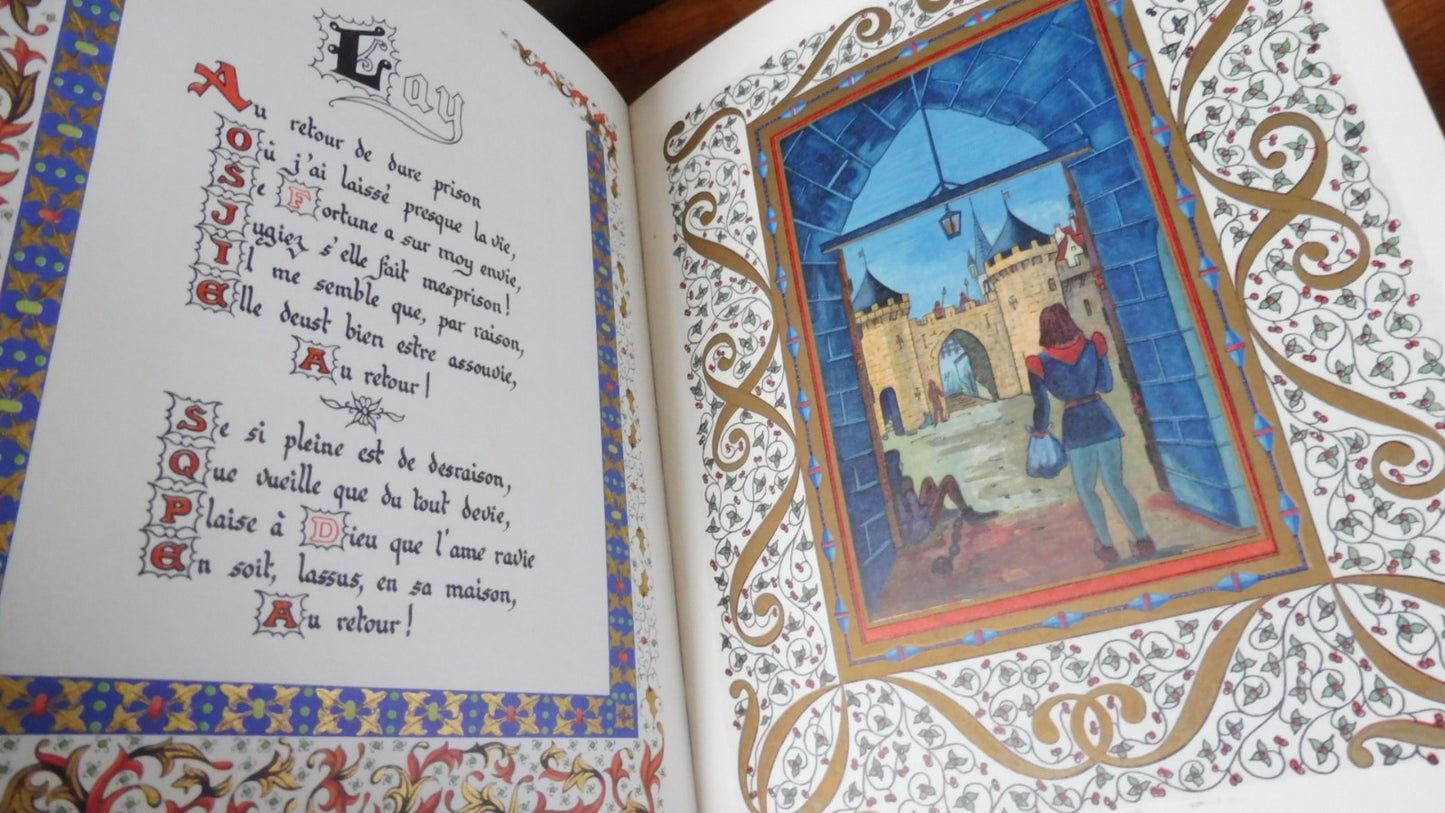 Lay
Au retour de dure prison
Où j'ai laissé presque la vie,
Se Fortune a sur moy envie,
Jugiez s'elle fait mesprison!
Il me semble que, par raison,
Elle deust bien estre assouvie,
Au retour!
Se si pleine est de desraison,
Que vueille que du tout devie,
Plaise à Dieu que l'ame ravie
En soit, lassus, en sa maison,
Au retour!